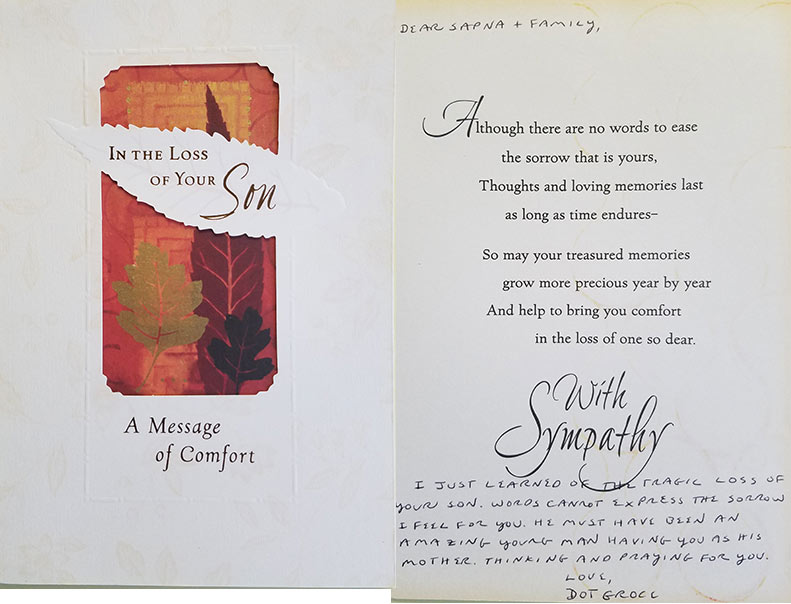 IN THE LOSS
OF YOUR Son
A Message
of Comfort
DEAR SAPNA + FAMILY,
Although there are no words to ease
the sorrow that is yours,
Thoughts and loving memories last
as long as time endures–
So may your treasured memories
grow more precious year by year
And help to bring you comfort
in the loss of one so dear.
With
Sympathy
I JUST LEARNED OF THE TRAGIC LOSS OF
YOUR SON. WORDS CANNOT EXPRESS THE SORROW
I FEEL FOR YOU. HE MUST HAVE BEEN AN
AMAZING YOUNG MAN HAVING YOU AS HIS
MOTHER. THINKING AND PRAYING FOR YOU.
LOVE,
DOT